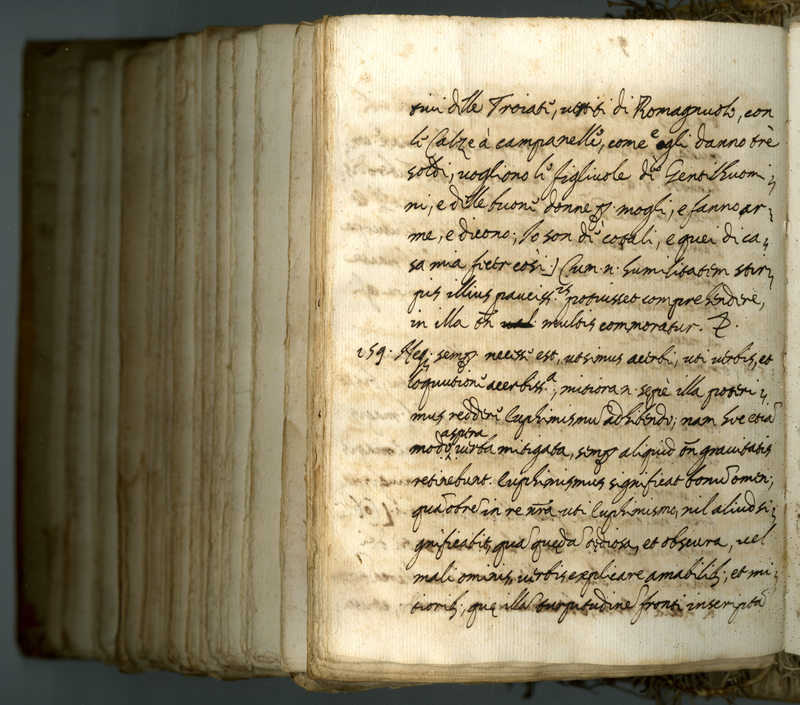 tivi delle Troiate, vestiti di Romagnuolo, con
le Calze à campanelle, come egli danno trè
soldi, vogliono le figliuole de Gentilhuomi,
ni, e delle buone donne p mogli, e fanno ar,
me, e dicono; Io son de cotali, e quei di ca,
sa mia fetr così) Cum n. humilitatem stir,
pis illius pauciss.is potuisset comprehendere,
in illa tn multis commoratur.
159: Neq; semp necesse est, ut simus acerbi, uti verbis, et
loquutione acerbiss.a, mitiora n. sepè illa poteri,
mus reddere Euphimismu adhibendo; nam hve etia
modo aspera verba mitigata, semp aliquid tn gravitatis
retinebunt. Euphimismus significat bonu omen;
qua obre in re nra uti Euphimismo, nil aliud si,
gnificabit, qua queda odiosa, et obscura, vel
mali ominis, verbis explicare amabilib; et mi,
tiorib; que illa turpitudine fronti inscripta